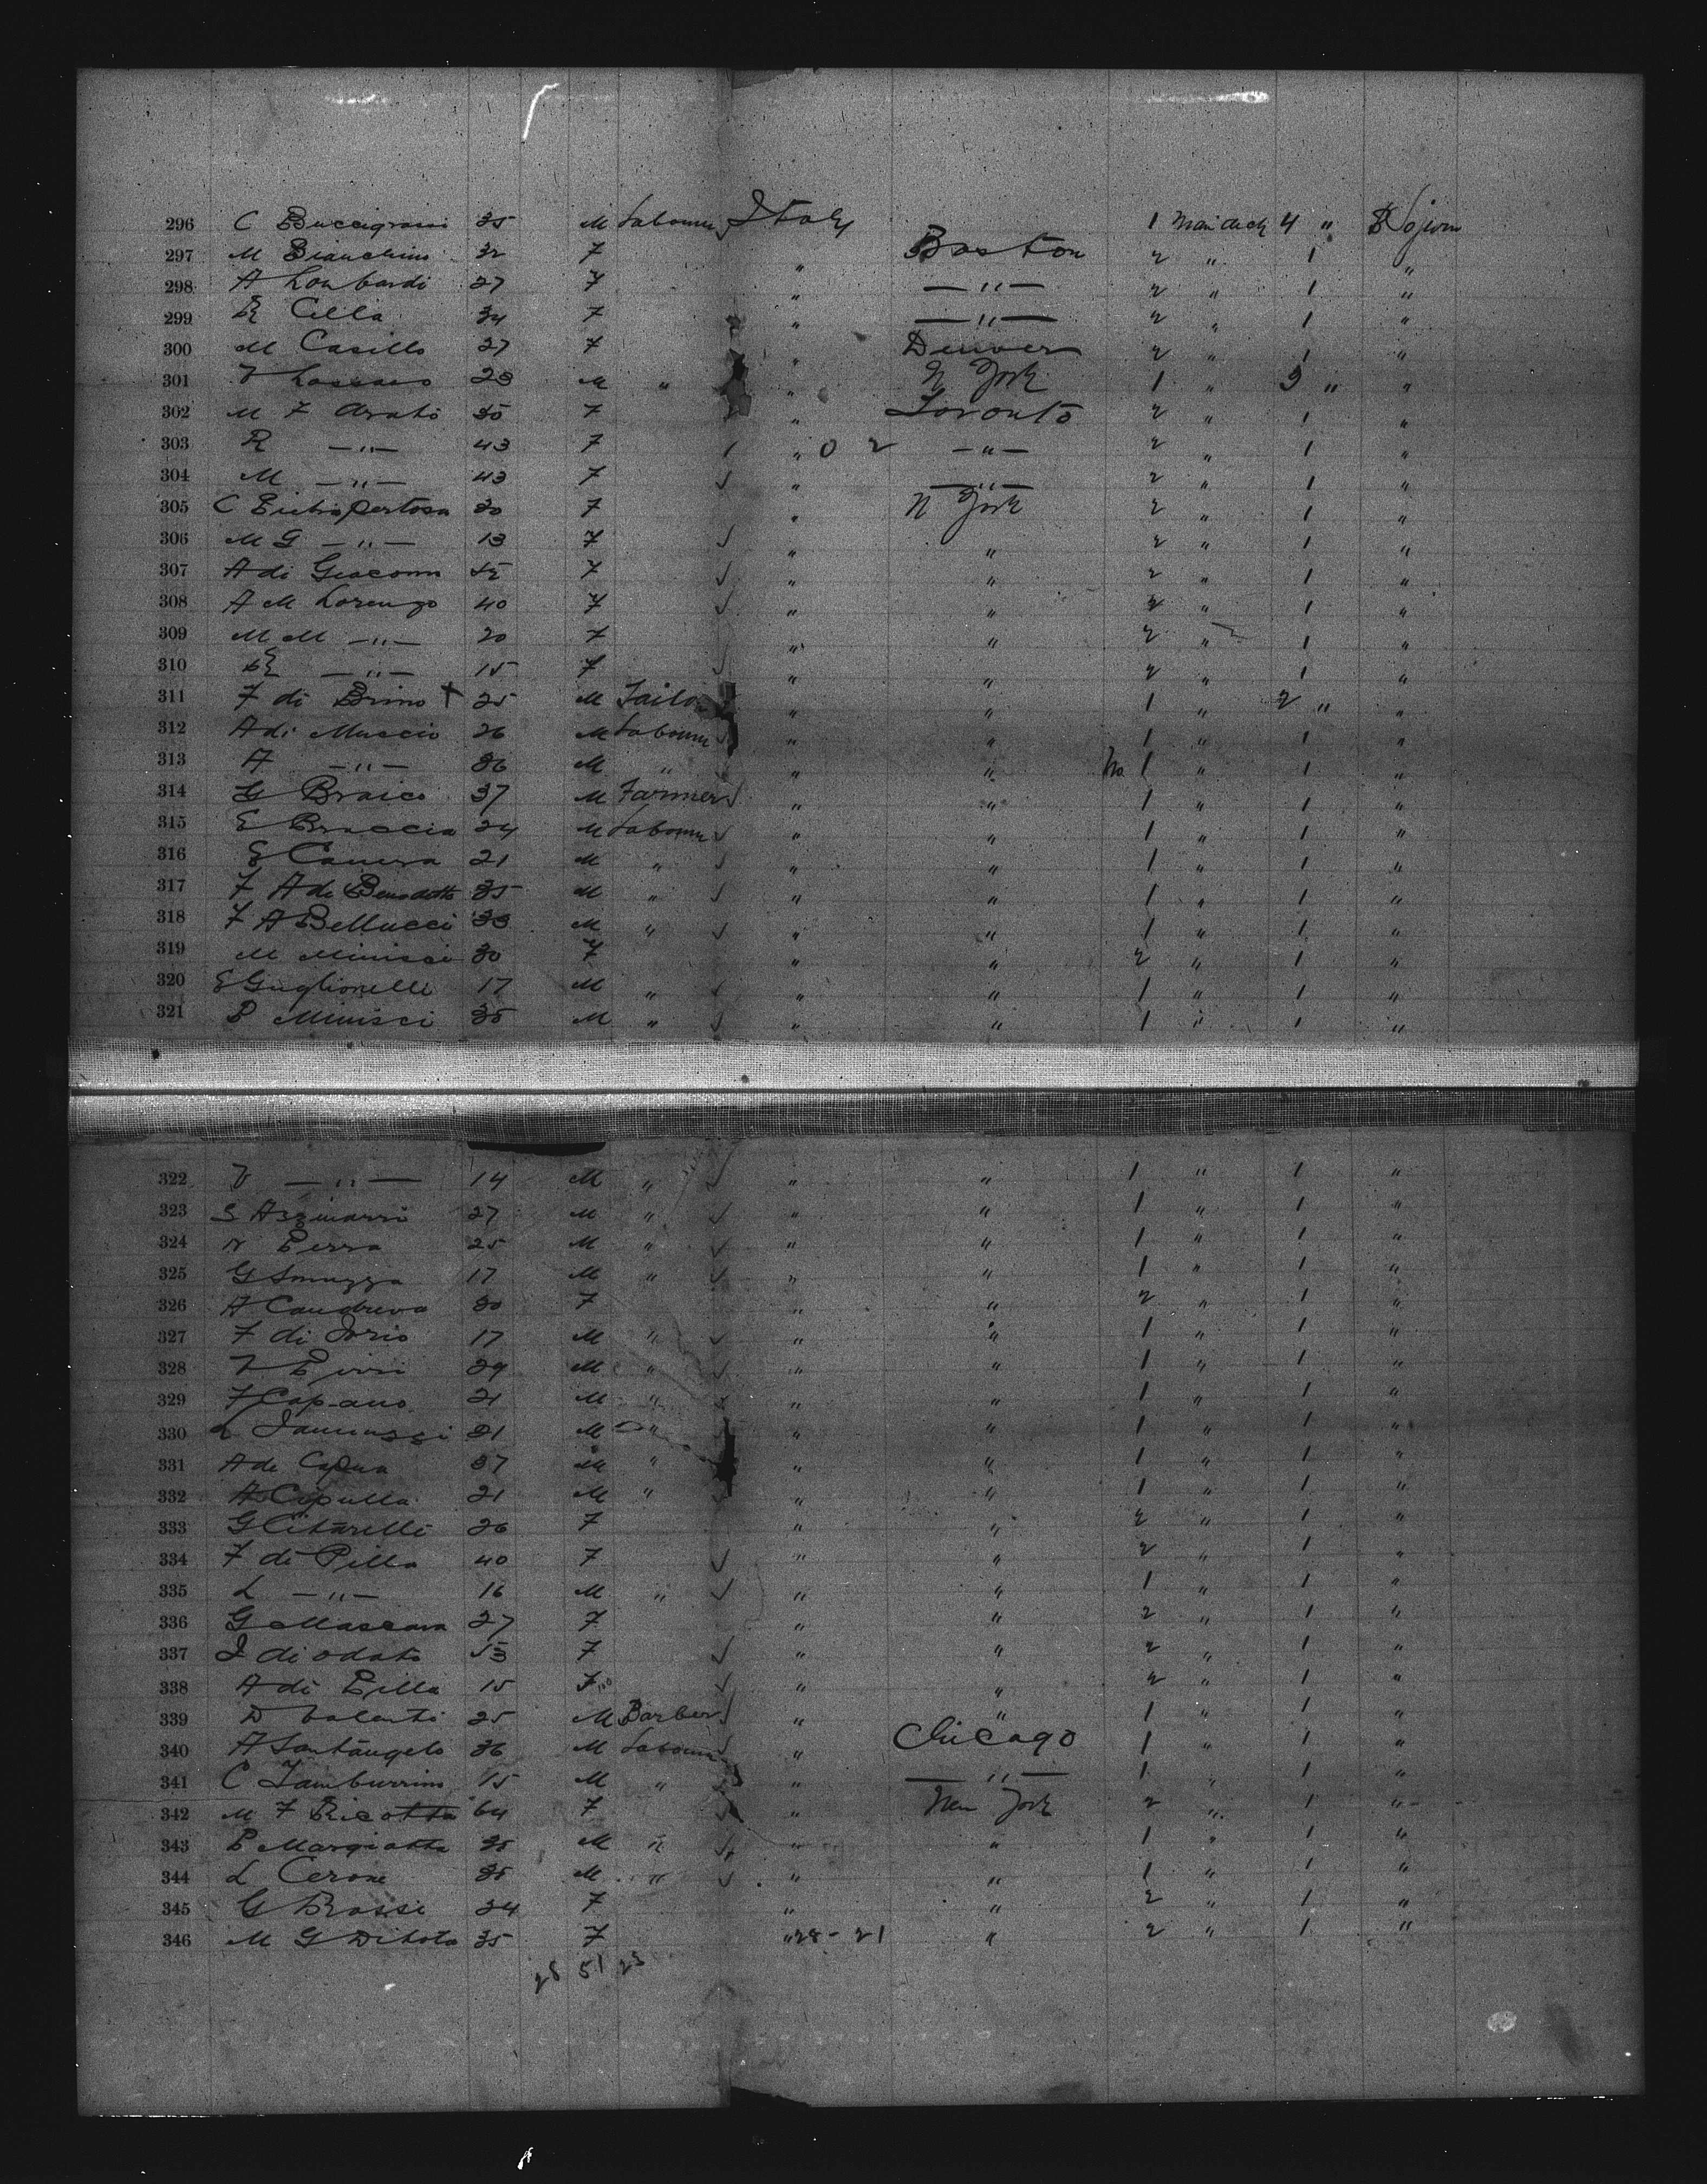 296 C Buccigrossi 35 M Labourer Italy 1 Main deck 4 " Sojourn
297 M Bianchini 32 F " Boston 2 " 1 "
298 A Lombardi 27 F " — " — 2 " 1 "
299 R Cilla 34 F " — " — 2 " 1 "
300 M Casillo 27 F " Denver 2 " 1 "
301 V Lossaco 23 M " " N York 1 " 3 " "
302 M F Arato 30 F " Toronto 2 " 1 "
303 R — " — 43 F " 0 2 — " — 2 " 1 "
304 M — " — 43 F " — " — 2 " 1 "
305 C Pietropertosa 30 F " N York 2 " 1 "
306 M G — " — 13 F " " 2 " 1 "
307 A di Giacomo F " " 2 " 1 "
308 A M Lorenzo 40 F " " 2 " 1 "
309 M M — " — 20 F " " 2 " 1 "
310 — " — 15 F " " 2 " 1 "
311 F di Brino + 25 M Tailor " " 1 " 2 " "
312 A di Muccio 26 M Labourer " " 1 " 1 "
313 A — " — 36 M " " " No. 1 " 1 "
314 G Braico 37 M Farmer " " 1 " 1 "
315 E Braccia 24 M Labourer " " 1 " 1 "
316 E Camera 21 M " " " 1 " 1 "
317 F A de Benedetto 35 M " " " 1 " 1 "
318 F A Bellucci 33 M " " " 1 " 1 "
319 M Minisci 30 F " " 2 " 1 "
320 E Guglionelli 17 M " " " 1 " 1 "
321 P Minisci 35 M " " " 1 " 1 "
322 V — " — 14 M " " " 1 " 1 "
323 S Azzinarri 27 M " " " 1 " 1 "
324 N Perra 25 M " " " 1 " 1 "
325 G Smuzza 17 M " " " 1 " 1 "
326 A Candreva 30 F " " 2 " 1 "
327 F di Iorio 17 M " " " 1 " 1 "
328 V Pirri 29 M " " " 1 " 1 "
329 F Capano 21 M " " " 1 " 1 "
330 21 M " " " 1 " 1 "
331 A de Capua 37 M " " " 1 " 1 "
332 A Cipulla 21 M " " " 1 " 1 "
333 G Citarelli 26 F " " 2 " 1 "
334 F di Pilla 40 F " " 2 " 1 "
335 L — " — 16 M " " " 1 " 1 "
336 G Massara 27 F " " 2 " 1 "
337 I di odato 53 F " " 2 " 1 "
338 A di Pilla 15 F " " 2 " 1 "
339 D Valenti 25 M Barber " " 1 " 1 "
340 A Santangelo 36 M Labourer " Chicago 1 " 1 "
341 C Tamburrino 15 M " " — " — 1 " 1 "
342 M F Ricotta 64 F " New York 2 " 1 "
343 P Margiotta 35 M " " " 1 " 1 "
344 L Cerone 35 M " " " 1 " 1 "
345 G Brossi 24 F " " 2 " 1 "
346 M G Ditota 35 F " 28 - 21 " 2 " 1 "
28 51 23